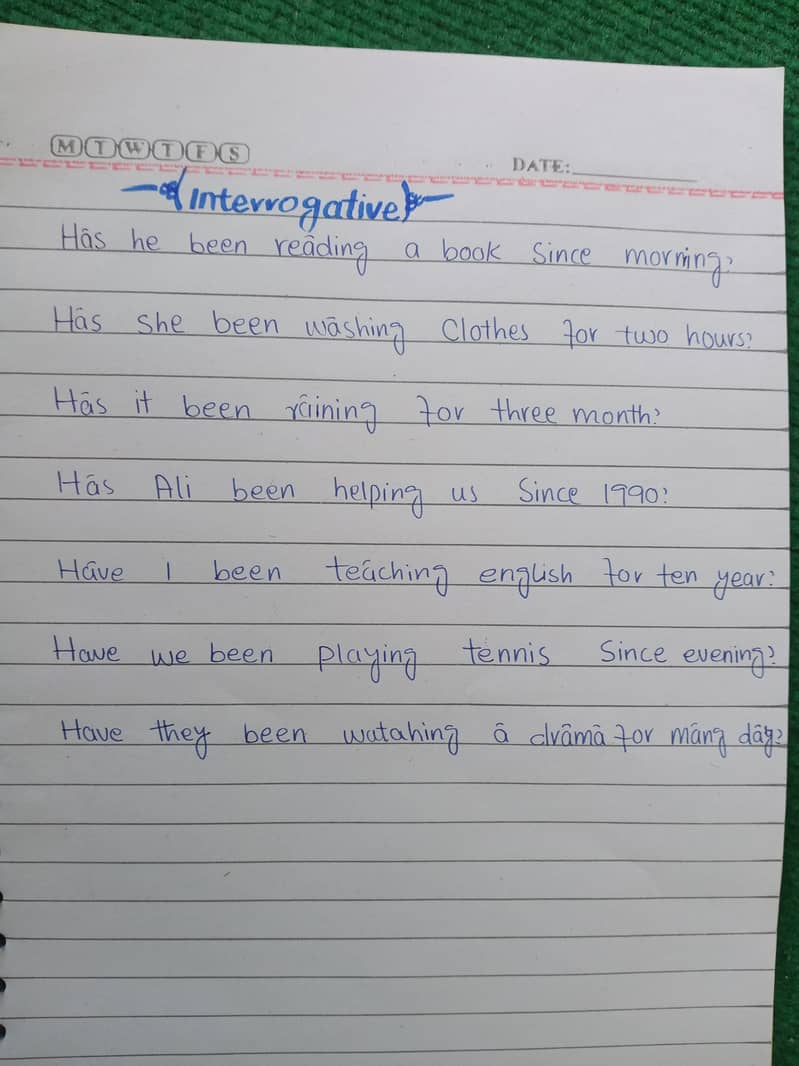 M T W T F S
DATE:
Interrogative
Has he been reading a book since morning?
Has she been washing Clothes for two hours?
Has it been raining for three month?
Has Ali been helping us Since 1990?
Have I been teaching english for ten year?
Have we been playing tennis Since evening?
Have they been watahing a drama for many day?